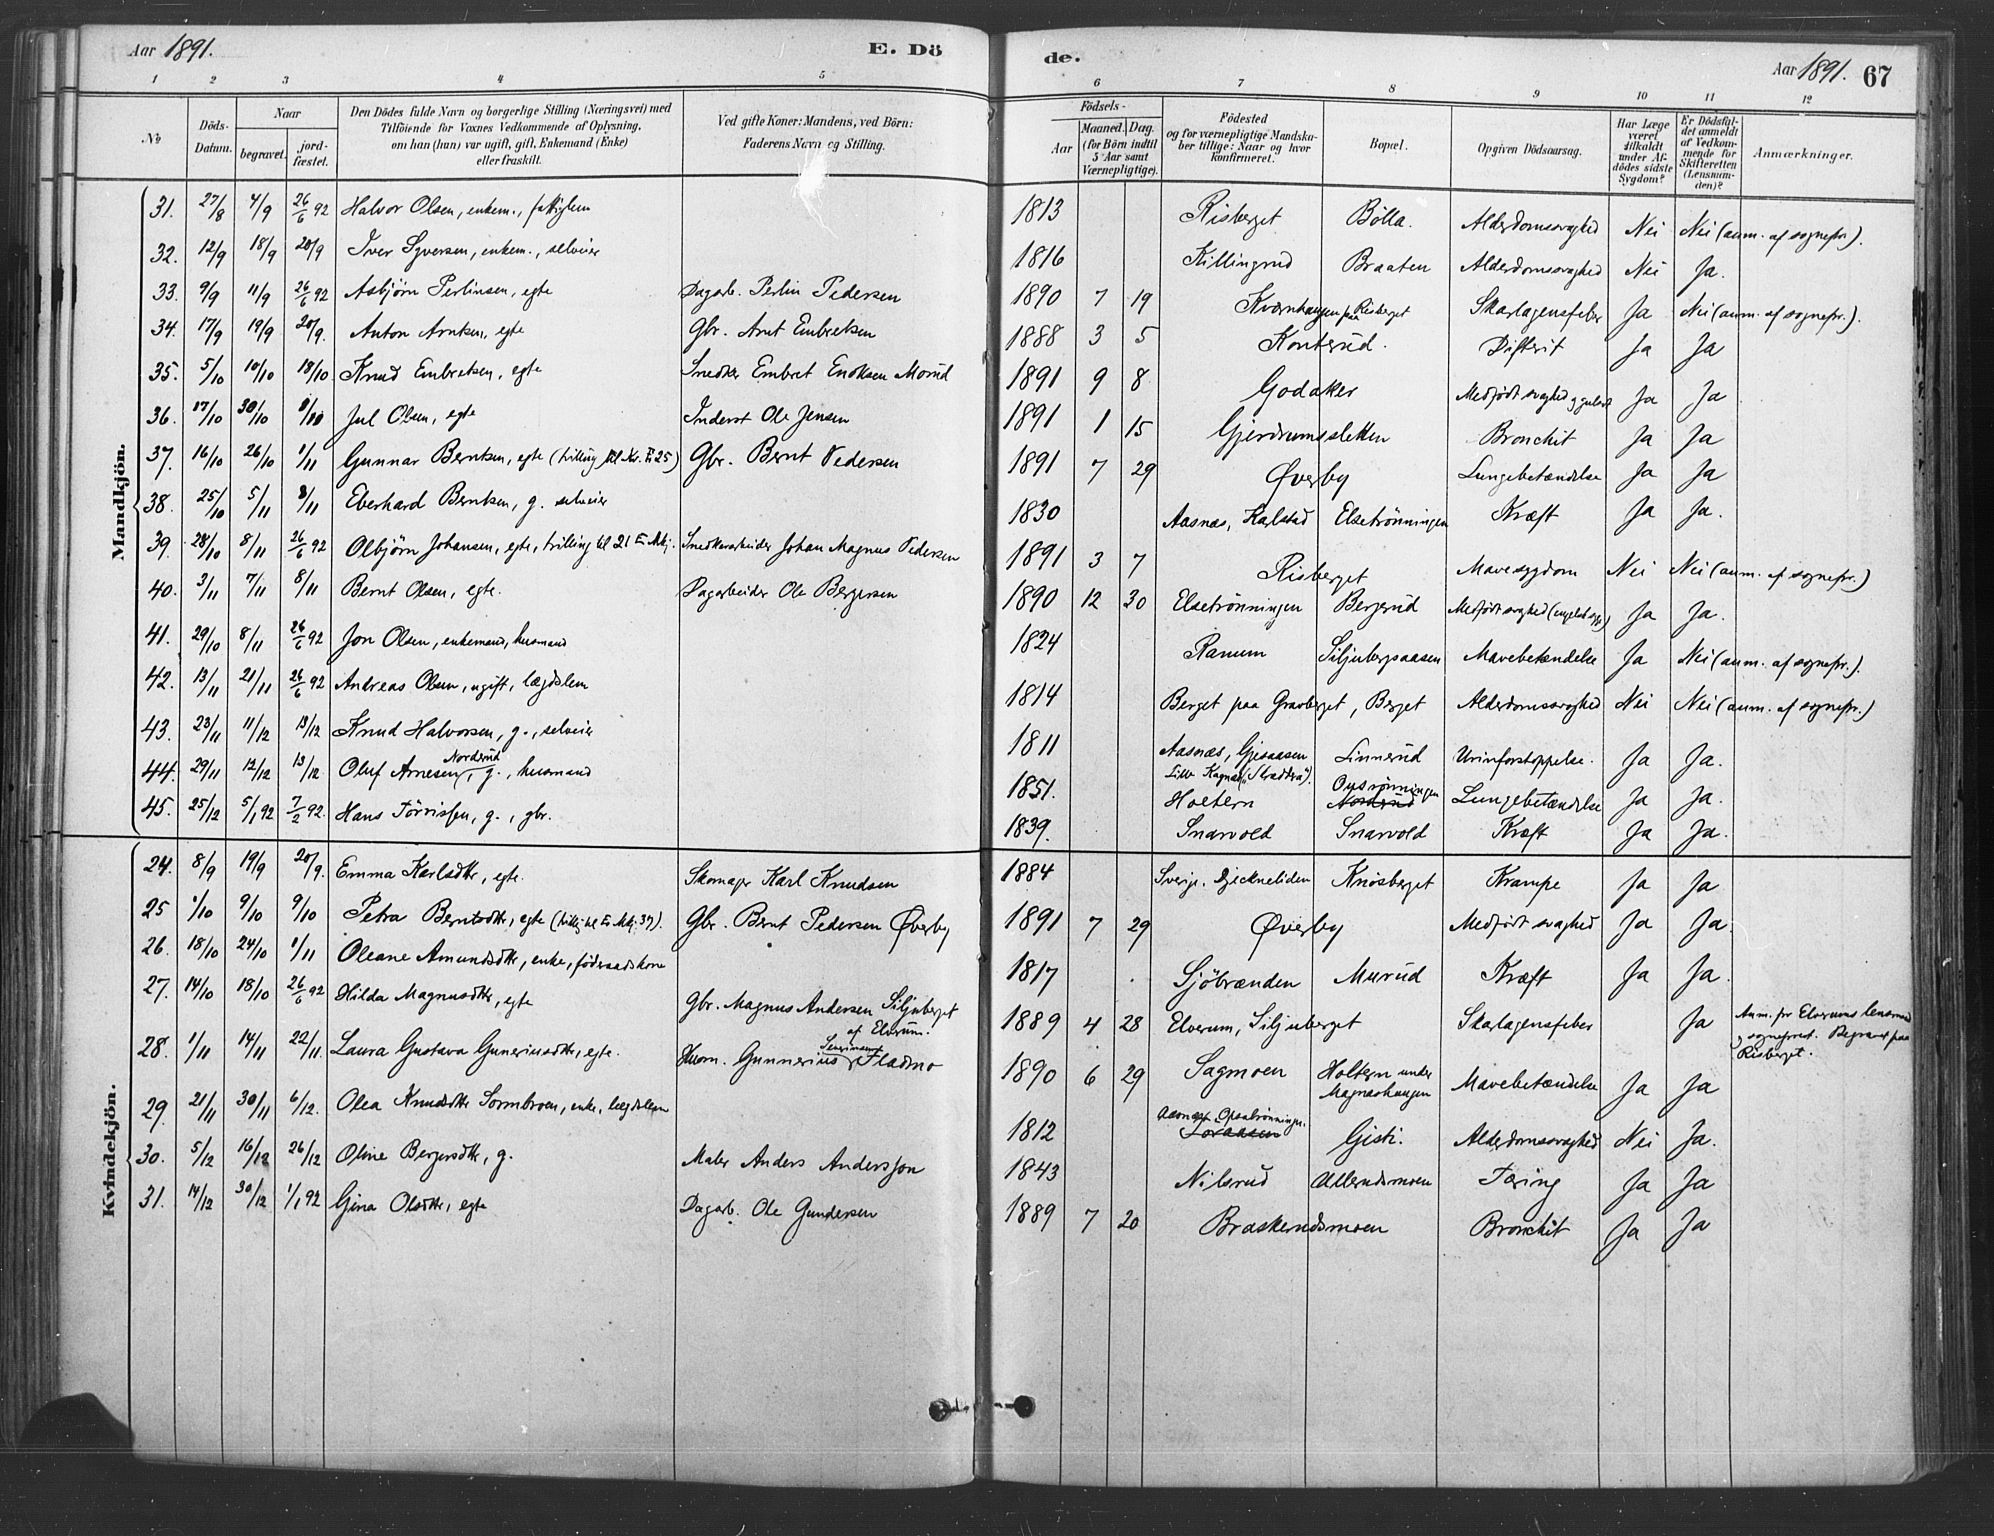 Aar 1891. E. Dö de. Aar 1891. 67
1 2 3 4 5 6 7 8 9 10 11 12
No Döds-Datum. Naar begravet. jordfæstet. Den Dödes fulde Navn og borgerlige Stilling (Næringsvei) med Tilföiende for Voxnes Vedkommende af Oplysning, om han (hun) var ugift, gift, Enkemand (Enke) eller fraskilt. Ved gifte Koner: Mandens, ved Börn: Faderens Navn og Stilling. Födsels- Aar Maaned. Dag. (for Börn indtil 5 Aar samt Værnepligtige). Födested og for værnepligtige Mandskaber tillige: Naar og hvor konfirmeret. Bopæl. Opgiven Dödsaarsag. Har Læge været tilkaldt under Afdödes sidste Sygdom? Er Dödsfaldet anmeldt af Vedkommende for Skifteretten (Lensmanden)? Anmærkninger.
Mandkjön.
31. 27/8 4/9 26/6 92 Halvor Olsen, enkem., fattiglem 1813 Risberget Bölla. Alderdomssvaghed Nei Nei (anm. af sognepr.).
32. 12/9 18/9 20/9 Iver Syversen, enkem., selveier 1816 Killingrud Braaten Alderdomssvaghed Nei Ja.
33. 9/9 11/9 26/6 92 Asbjørn Perlinsen, egte Dagarb. Perlin Pedersen 1890 7 19 Kværnhaugen paa Risberget Skarlagensfeber Ja Nei (anm. af sognepr.).
34. 17/9 19/9 20/9. Anton Arntsen, egte Gbr. Arnt Embretsen 1888 3 5 Konterud. Difterit Ja Ja
35. 5/10 10/10 18/10 Knud Embretsen, egte Snedker Embret Eriksen Morud 1891 9 8 Godaker Medfødt svaghed og gulsot Ja Ja
36. 17/10 30/10 1/11 Jul Olsen, egte Inderst Ole Jensen 1891 1 15 Gjerdrumssletten Bronchit Ja Ja
37. 16/10 26/10 1/11 Gunnar Berntsen, egte (tvilling til No. E 25) Gbr. Bernt Pedersen 1891 7 29 Øverby Lungebetændelse Ja Ja
38. 25/10 5/11 8/11 Eberhard Berntsen, g. selveier 1830 Aasnæs, Kalstad Elsetrönningen Kræft Ja Ja.
39. 28/10 8/11 26/6 92 Olbjörn Johansen, egte, tvilling til 21 E Mkj. Snedkerarbeider Johan Magnus Pedersen 1891 3 7 Risberget Mavesygdom Nei Nei (anm. af sognepr.)
40. 3/11 7/11 8/11 Bernt Olsen, egte. Dagarbeider Ole Bergersen 1890 12 30 Elsetrönningen Bergerud Medfødt svaghed (engelsk syge) Ja Ja.
41. 29/10 8/11 26/6 92 Jon Olsen, enkemand, husmand 1824 Ranum Siljubergsaasen Mavebetændelse Ja Nei (anm. af sognepr.).
42. 13/11 21/11 26/6 92 Andreas Olsen, ugift, lægdslem 1814 Berget paa Gravberget, Berget Alderdomssvaghed Nei Nei (anm. af sognepr.)
43. 23/11 11/12 13/12 Knud Halvorsen, g., selveier 1811 Aasnæs, Gjesaasen Linnerud Urinforstoppelse. Ja Ja.
44. 29/11 12/12 13/12 Oluf Arnesen Nordsrud, g., husmand 1851. Lille Kagnæs Holtern Opsrönningen Nordsrud Lungebetændelse Ja Ja.
45. 25/12 5/1 92 7/2 92. Hans Törrissen, g., gbr. 1839. Snarvold Snarvold Kræft Ja Ja.
Kvindekjön.
24. 8/9 19/9 20/9. Emma Karlsdtr, egte. Skomager Karl Knudsen 1884 Sverige. Djeckneliden Knösberget Krampe Ja Ja
25 1/10 9/10 9/10 Petra Berntsdtr, egte (tvill. til E. Mkj. 37). Gbr. Bernt Pedersen Øverby 1891 7 29 Øverby Medfødt svaghed Ja Ja.
26. 18/10 24/10 1/11 Oleane Amundsdtr, enke, föderaadskone 1817 Sjöbrænden Murud Kræft Ja Ja.
27. 14/10 18/10 26/6 92 Hilda Magnusdtr, egte Gbr. Magnus Andersen Siljuberget af Elverum. 1889 4 28 Elverum, Siljuberget Skarlagensfeber Ja Anm. for Elverums lensmand og sogneprest. Begravet paa Risberget.
28. 1/11 14/11 22/11. Laura Gustava Gunneriusdtr, egte. Husm. Gunnerius Fladmo 1890 6 29 Sagmoen Holtern under Magnashaugen Mavebetændelse Ja Ja
29. 21/11 30/11 6/12. Olea Knudsdtr Sormbroen, enke, lægdslem 1812 Aasnæs Opsatrönningen. Gisti. Alderdomssvaghed Nei Ja.
30. 5/12 16/12 26/12 Oline Bergersdtr, g. Maler Anders Andersson 1843 Nilsrud Ullerudsmoen Tæring Ja Ja
31. 14/12 30/12 1/1 92 Gina Olsdtr, egte Dagarb. Ole Gundersen 1889 7 20 Braskerudsmoen Bronchit Ja Ja